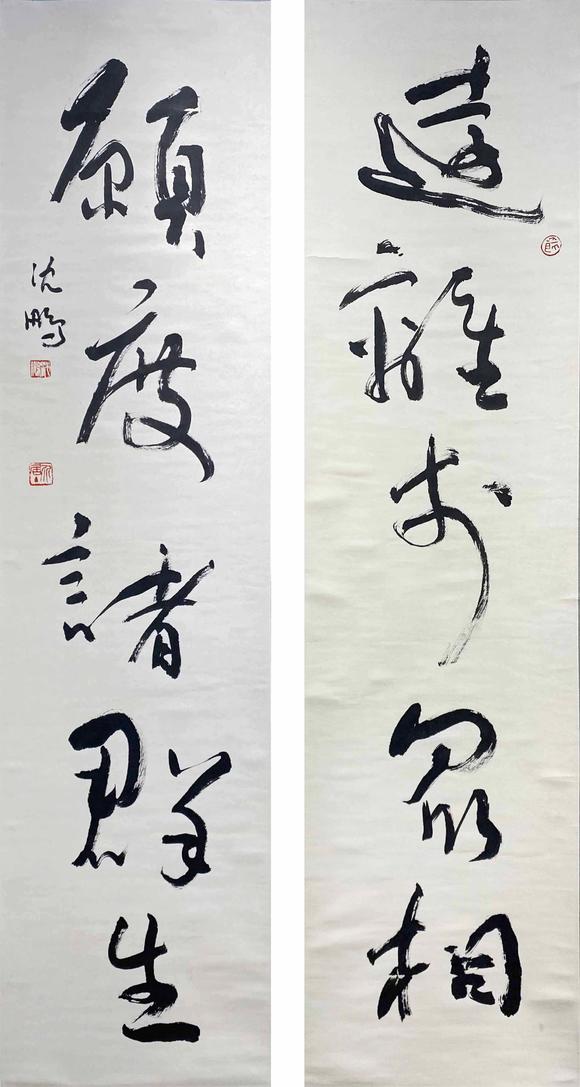 遠離於眾相
願度諸群生
沈鵬